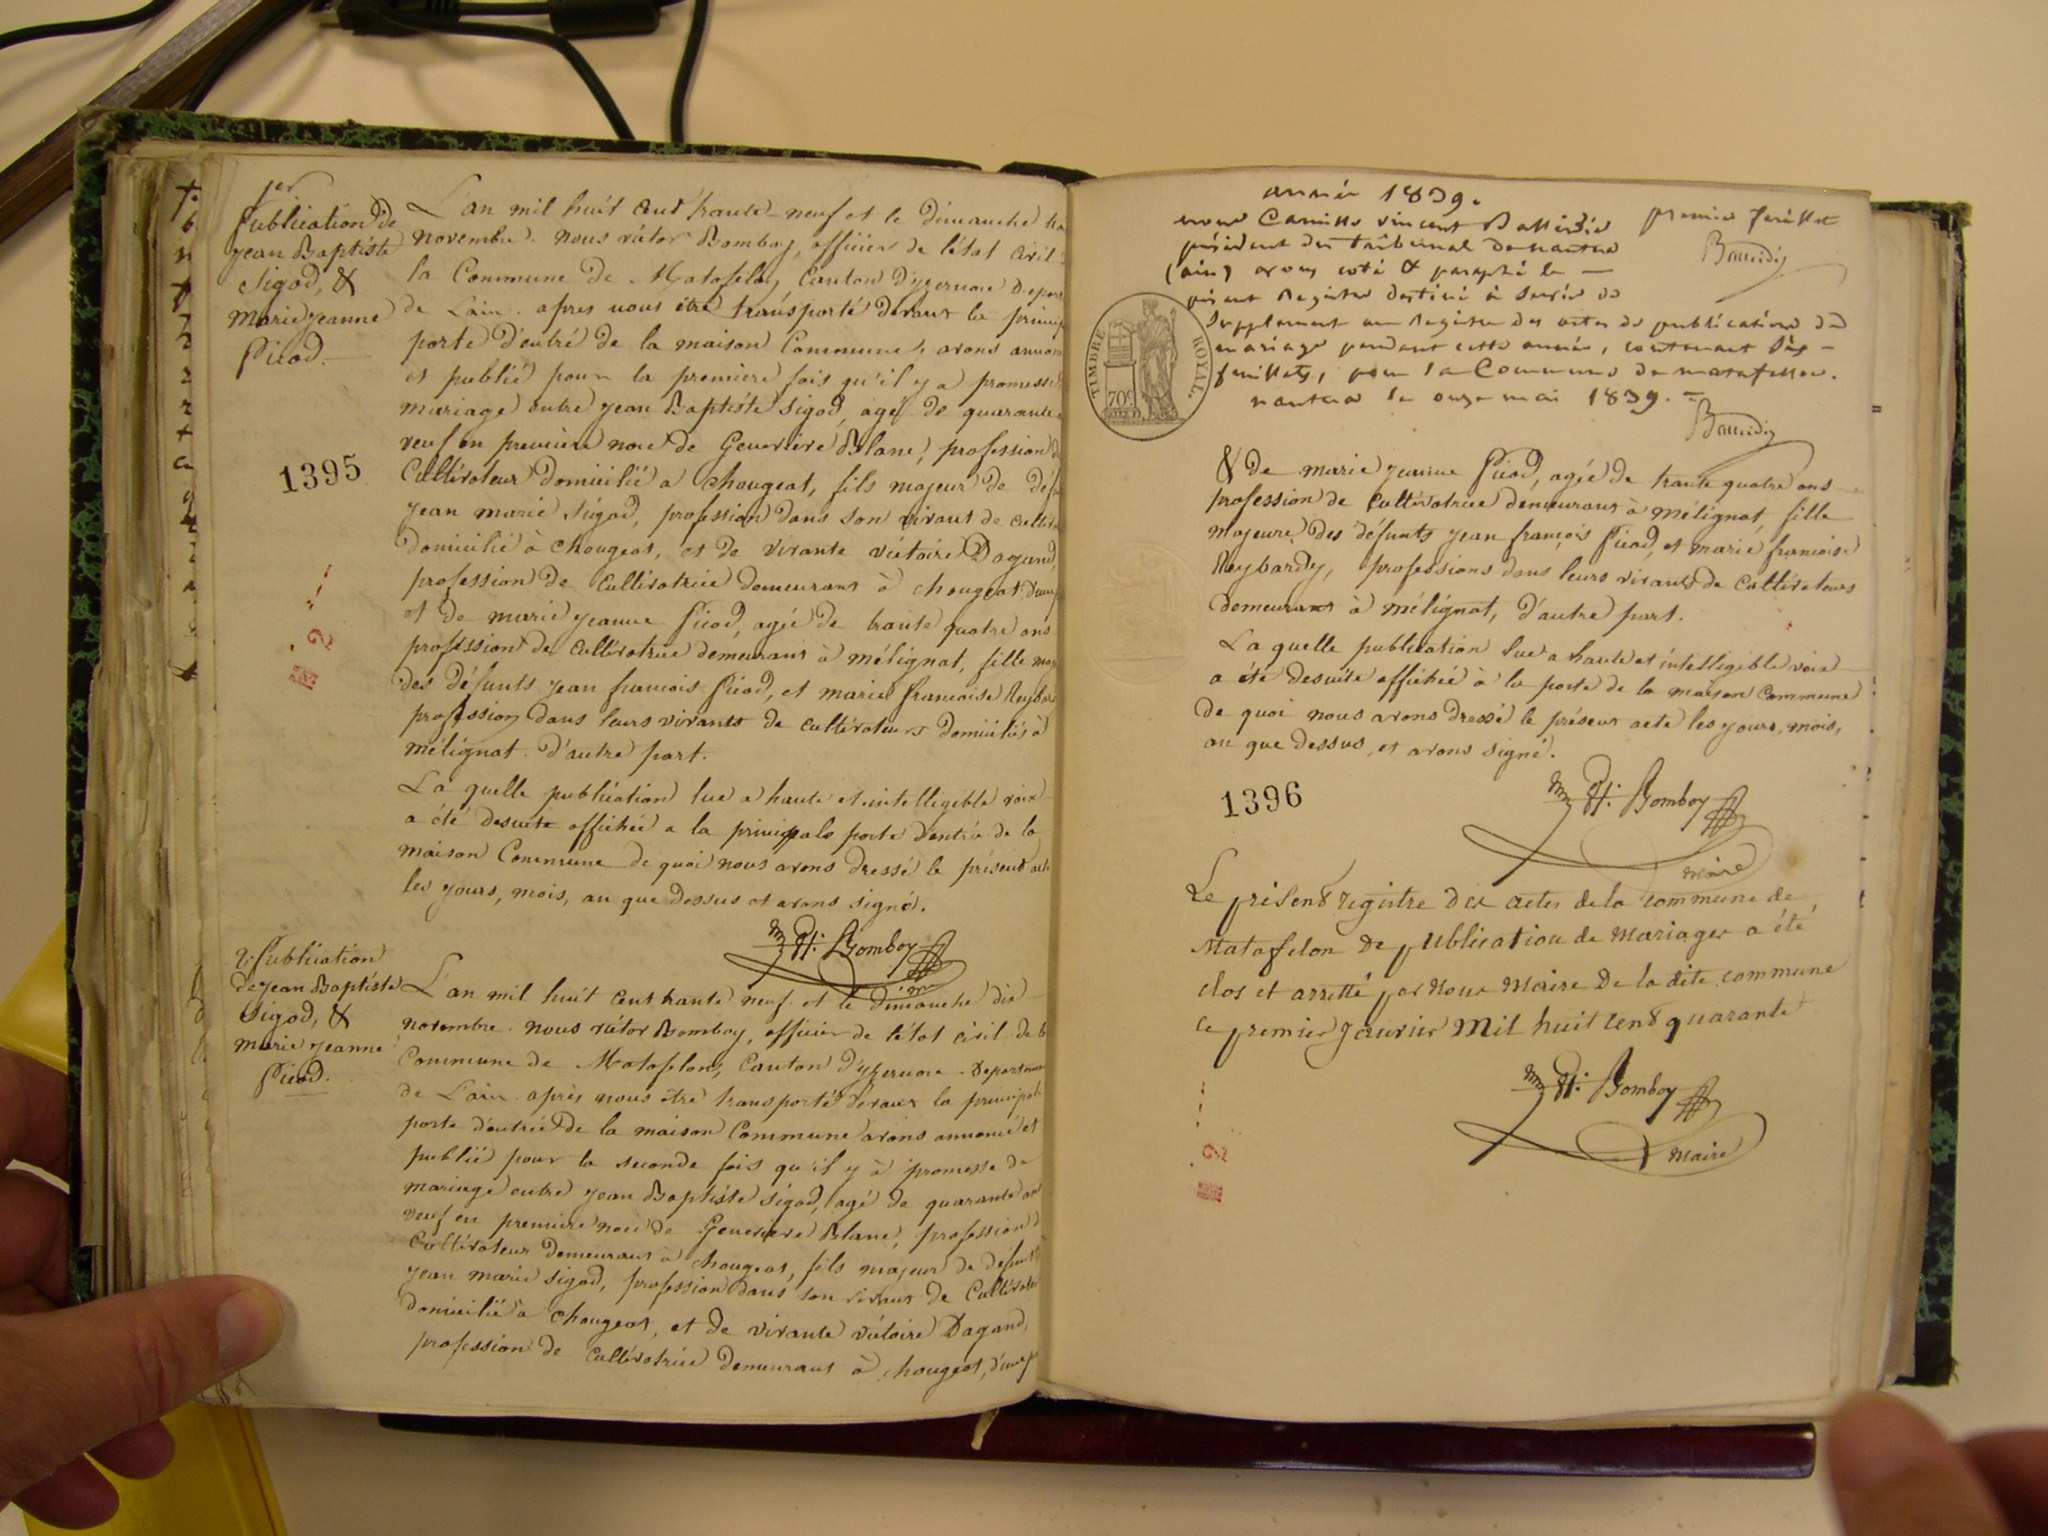 1er
Publication de
jean Baptiste
Sigod, &
Marie jeanne
Picod.
L'an mil huit cent trente-neuf et le dimanche
novembre. nous victor Bomboy, officier de l'état civil
la Commune de Matafelon, Canton d'yzernore
de L'ain. apres nous être transporté devant la
porte d'entré de la maison Commune, avons
et publié pour la premiere fois qu'il y a promesse
mariage entre jean Baptiste Sigod, agé de quarante
veuf en premiere noce de Genevieve Blanc, profession
Cultivateur domicilié a chougeat, fils majeur de
jean marie Sigod, profession dans son vivant de
domicilié à chougeat, et de vivante victoire Dagand,
profession de Cultivatrice demeurant à chougeat
et de marie jeanne Picod, agée de trante quatre ans
profession de Cultivatrice demeurant à mélignat, fille
des défunts jean francois Picod, et marie francoise
profession dans leurs vivants de cultivateurs domiciliés à
mélignat. d'autre part.
La quelle publication lue a haute et intelligible voix
a été desuite affichée a la principale porte d'entrée de la
maison Commune de quoi nous avons dressé le présent
les jours, mois, an que dessus et avons signé.
Bomboy
1395
2e Publication
de jean Baptiste
Sigod, &
marie jeanne
Picod.
L'an mil huit cent trante neuf et le dimanche dix
novembre. nous victor Bomboy, officier de l'état civil de
Commune de Matafelon, Canton d'yzernore.
de L'ain. après nous être transporté devant la principale
porte d'entrée de la maison Commune avons annoncé et
publié pour la seconde fois qu'il y à promesse de
mariage entre jean Baptiste Sigod, agé de quarante ans
veuf en premiere noce de Genevieve Blanc, profession
Cultivateur demeurant à chougeat, fils majeur de défunt
jean marie sigod, profession dans son vivant de
domicilié a chougeat, et de vivante victoire Dagand,
profession de Cultivatrice demeurant à chougeat,
année 1839.
nous Camille vincent
président du tribunal de nantua
(ain) avons coté & paraphé le
présent Registre destiné à servir de
Supplement au Registre des actes de publications de
mariage pendant cette année, contenant
feuillets, pour la Commune de matafelon.
nantua le onze mai 1839.
premier feuillet
TIMBRE ROYAL
70c
& de marie jeanne Picod, agée de trante quatre ans
profession de Cultivatrice demeurant à mélignat, fille
majeure des défunts jean françois Picod, et marie francoise
Reybardy, professions dans leurs vivants de Cultivateurs
demeurant à mélignat, d'autre part.
La quelle publication lue a haute et intelligible voix
a été desuite affichée à la porte de la maison commune
de quoi nous avons dressé le présent acte les jours, mois,
an que dessus, et avons signé.
Bomboy
maire
1396
Le présent registre des actes de la commune de
Matafelon de publication de mariages a été
clos et arretté par nous Maire de la dite commune
ce premier janvier Mil huit cent quarante
Bomboy
maire